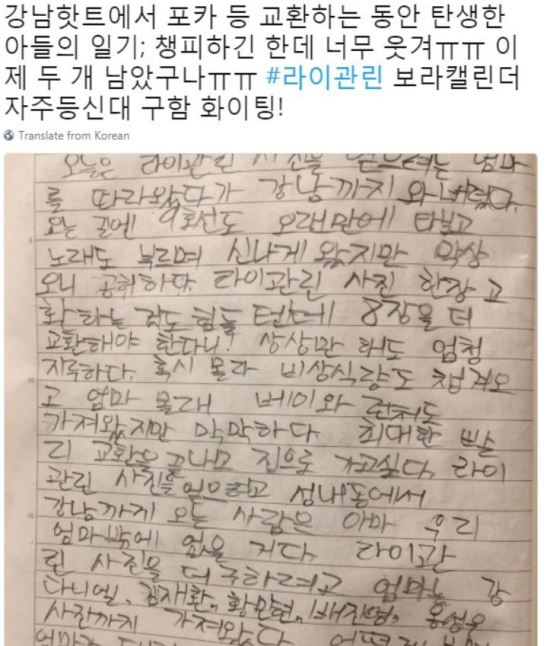 강남핫트에서 포카 등 교환하는 동안 탄생한
아들의 일기; 챙피하긴 한데 너무 웃겨ㅠㅠ 이
제 두 개 남았구나ㅠㅠ #라이관린 보라캘린더
자주등신대 구함 화이팅!
Translate from Korean
오늘은 라이관린 사진을 얻으려는 엄마
를 따라왔다가 강남까지 와버렸다.
오는 길엔 9호선도 오랜만에 타보고
노래도 부르며 신나게 왔지만 막상
오니 공허하다. 라이관린 사진 한장 교
환하는 것도 힘들 텐데 8장을 더
교환해야 한다니! 상상만 해도 엄청
지루하다. 혹시 몰라 비상식량도 챙겨오
고 엄마 몰래 베이와 런처도
가져왔지만 막막하다. 최대한 빨
리 교환을 끝내고 집으로 가고싶다. 라이
관린 사진을 얻으려고 성내동에서
강남까지 오는 사람은 아마 우리
엄마밖에 없을 거다. 라이관
린 사진을 더 구하려고 엄마는 강
다니엘, 김재환, 황민현, 배진영, 옹성우
사진까지 가져왔다. 어떻게